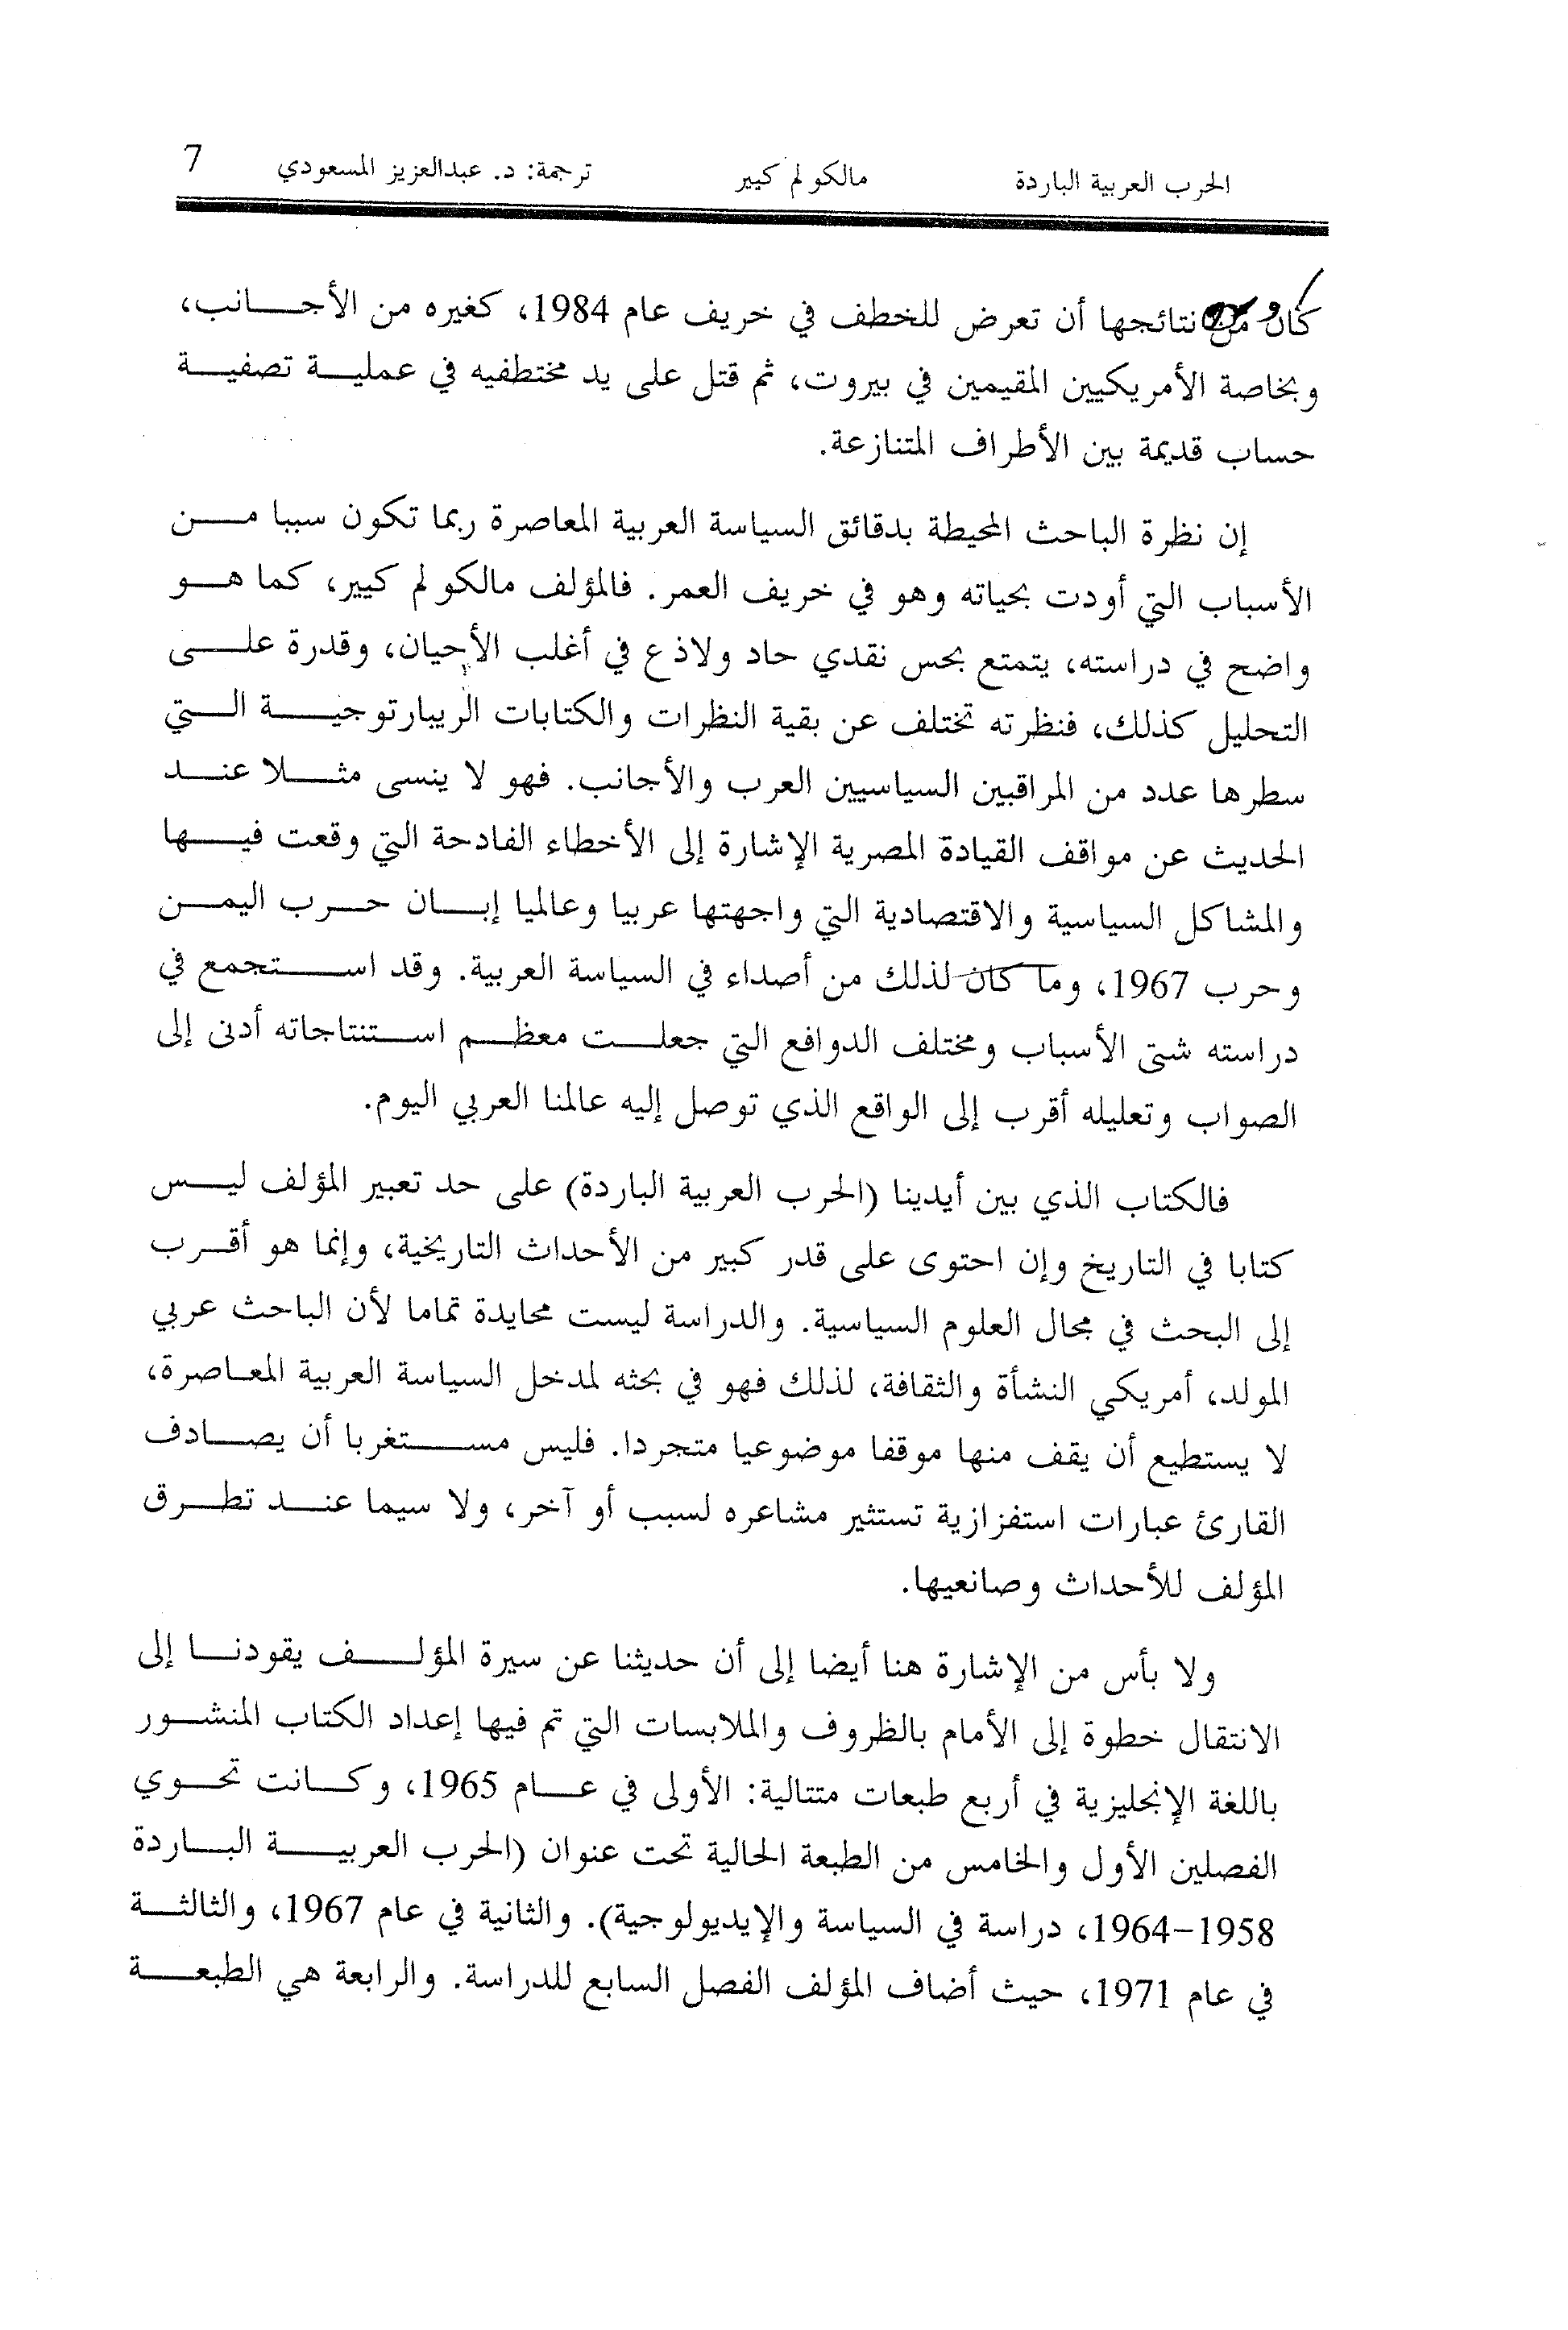 الحرب العربية الباردة مالكولم كيير ترجمة: د. عبدالعزيز المسعودي 7
كان من نتائجها أن تعرض للخطف في خريف عام 1984، كغيره من الأجانب،
وبخاصة الأمريكيين المقيمين في بيروت، ثم قتل على يد مختطفيه في عملية تصفية
حساب قديمة بين الأطراف المتنازعة.
إن نظرة الباحث المحيطة بدقائق السياسة العربية المعاصرة ربما تكون سببا من
الأسباب التي أودت بحياته وهو في خريف العمر. فالمؤلف مالكولم كيير، كما هو
واضح في دراسته، يتمتع بحس نقدي حاد ولاذع في أغلب الأحيان، وقدرة على
التحليل كذلك، فنظرته تختلف عن بقية النظرات والكتابات الريبارتوجية التي
سطرها عدد من المراقبين السياسيين العرب والأجانب. فهو لا ينسى مثلا عند
الحديث عن مواقف القيادة المصرية الإشارة إلى الأخطاء الفادحة التي وقعت فيها
والمشاكل السياسية والاقتصادية التي واجهتها عربيا وعالميا إبان حرب اليمن
وحرب 1967، وما كان لذلك من أصداء في السياسة العربية. وقد استجمع في
دراسته شتى الأسباب ومختلف الدوافع التي جعلت معظم استنتاجاته أدنى إلى
الصواب وتعليله أقرب إلى الواقع الذي توصل إليه عالمنا العربي اليوم.
فالكتاب الذي بين أيدينا (الحرب العربية الباردة) على حد تعبير المؤلف ليس
كتابا في التاريخ وإن احتوى على قدر كبير من الأحداث التاريخية، وإنما هو أقرب
إلى البحث في مجال العلوم السياسية. والدراسة ليست محايدة تماما لأن الباحث عربي
المولد، أمريكي النشأة والثقافة، لذلك فهو في بحثه لمدخل السياسة العربية المعاصرة،
لا يستطيع أن يقف منها موقفا موضوعيا متجردا. فليس مستغربا أن يصادف
القارئ عبارات استفزازية تستثير مشاعره لسبب أو آخر، ولا سيما عند تطرق
المؤلف للأحداث وصانعيها.
ولا بأس من الإشارة هنا أيضا إلى أن حديثنا عن سيرة المؤلف يقودنا إلى
الانتقال خطوة إلى الأمام بالظروف والملابسات التي تم فيها إعداد الكتاب المنشور
باللغة الإنجليزية في أربع طبعات متتالية: الأولى في عام 1965، وكانت تحوي
الفصلين الأول والخامس من الطبعة الحالية تحت عنوان (الحرب العربية الباردة
1958-1964، دراسة في السياسة والإيديولوجية). والثانية في عام 1967، والثالثة
في عام 1971، حيث أضاف المؤلف الفصل السابع للدراسة. والرابعة هي الطبعة